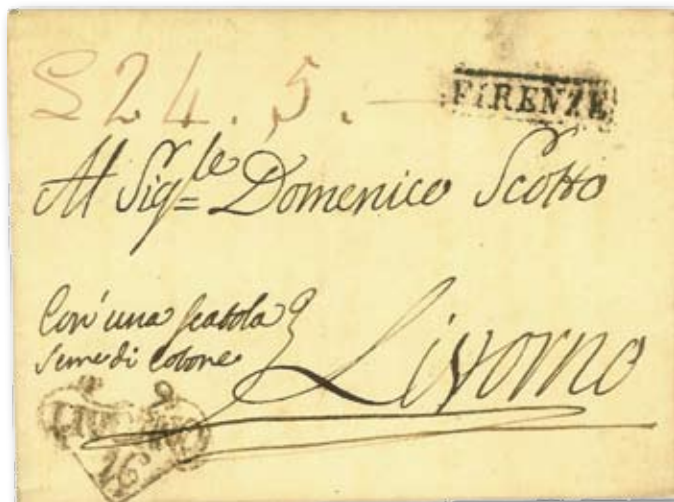 £ 24.5.—
FIRENZE
Al Sig.le Domenico Scotto
Con una scatola
seme di cotone
Livorno
16